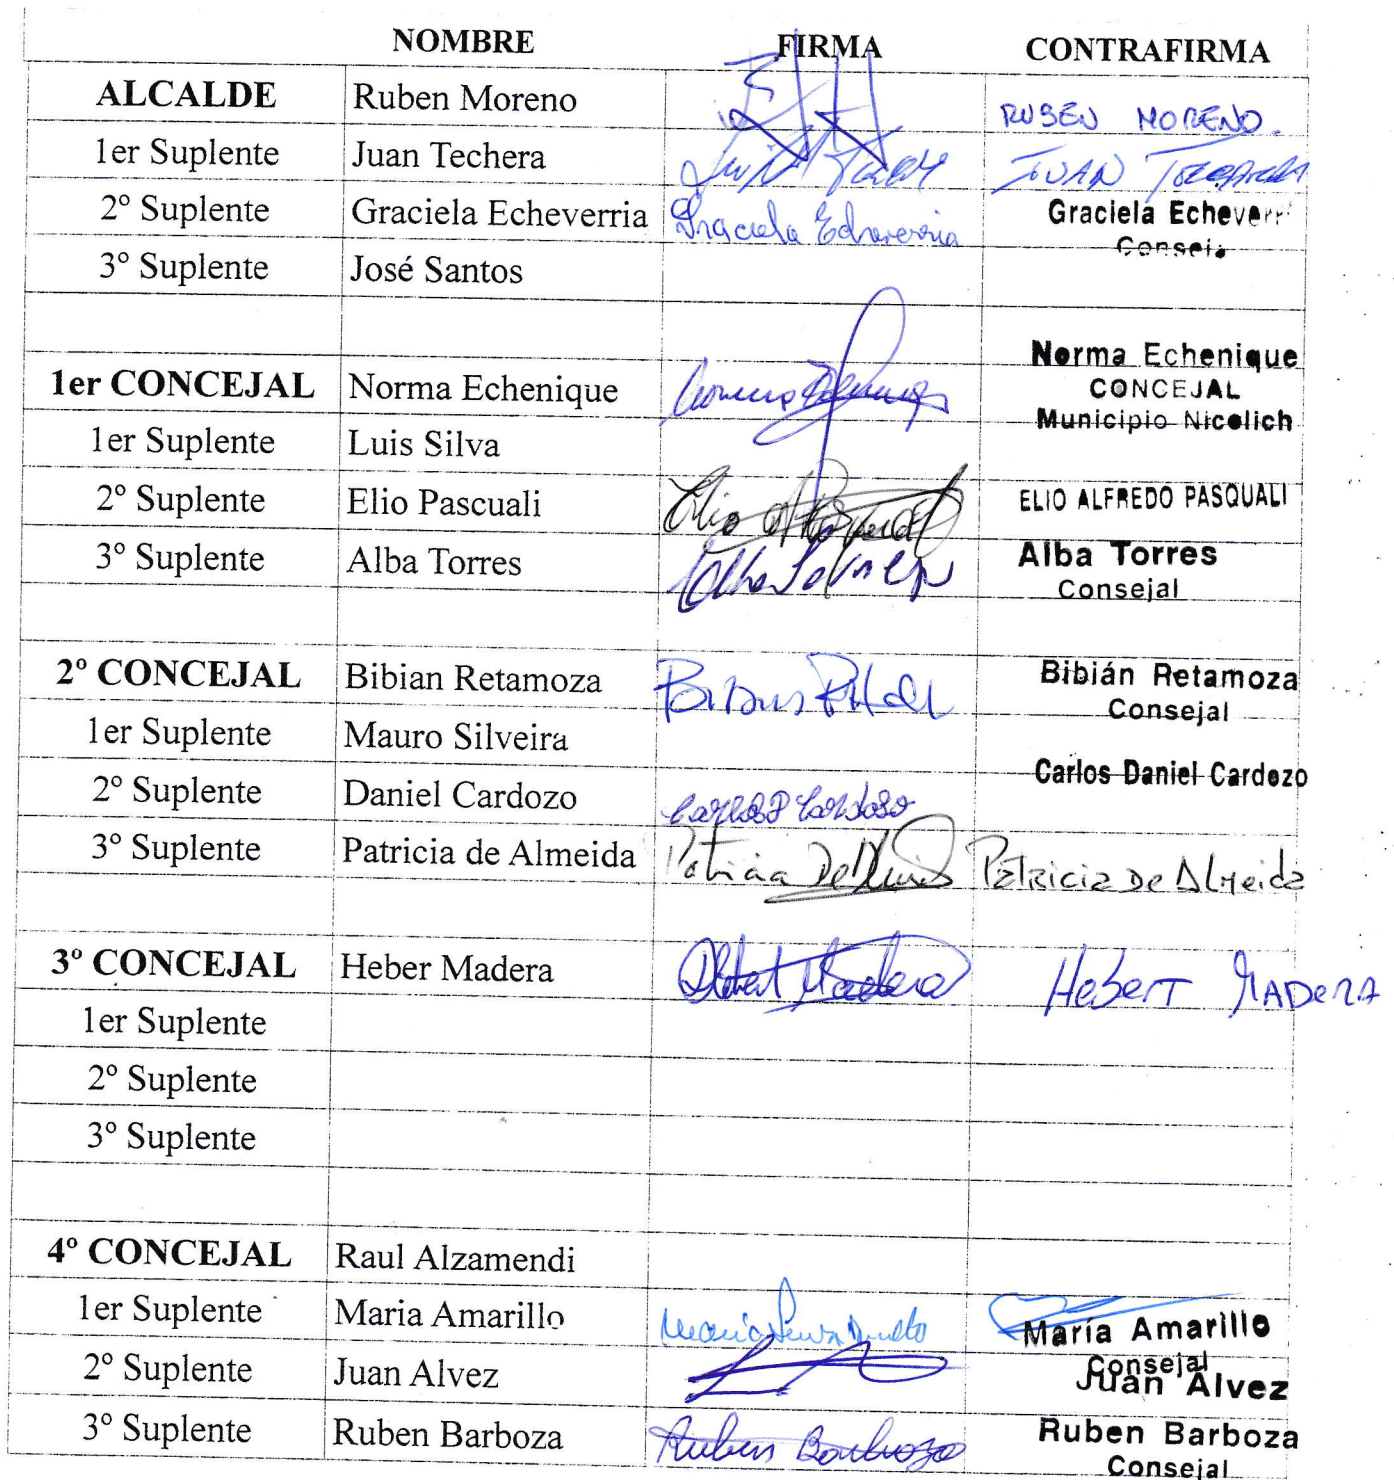 NOMBRE FIRMA CONTRAFIRMA
ALCALDE Ruben Moreno RUBEN MORENO.
1er Suplente Juan Techera JUAN TECHERA
2º Suplente Graciela Echeverria Graciela Echeverria Graciela Echeverri
Conseja
3º Suplente José Santos
Norma Echenique
1er CONCEJAL Norma Echenique CONCEJAL
Municipio Nicolich
1er Suplente Luis Silva
2º Suplente Elio Pascuali ELIO ALFREDO PASQUALI
3º Suplente Alba Torres Alba Torres
Consejal
2º CONCEJAL Bibian Retamoza Bibián Retamoza
Consejal
1er Suplente Mauro Silveira
Carlos Daniel Cardozo
2º Suplente Daniel Cardozo
3º Suplente Patricia de Almeida Patricia De Almeida
3º CONCEJAL Heber Madera Hebert Madera Hebert MADERA
1er Suplente
2º Suplente
3º Suplente
4º CONCEJAL Raul Alzamendi
1er Suplente Maria Amarillo María Amarillo
Consejal
2º Suplente Juan Alvez Juan Alvez
3º Suplente Ruben Barboza Ruben Barboza Ruben Barboza
Consejal